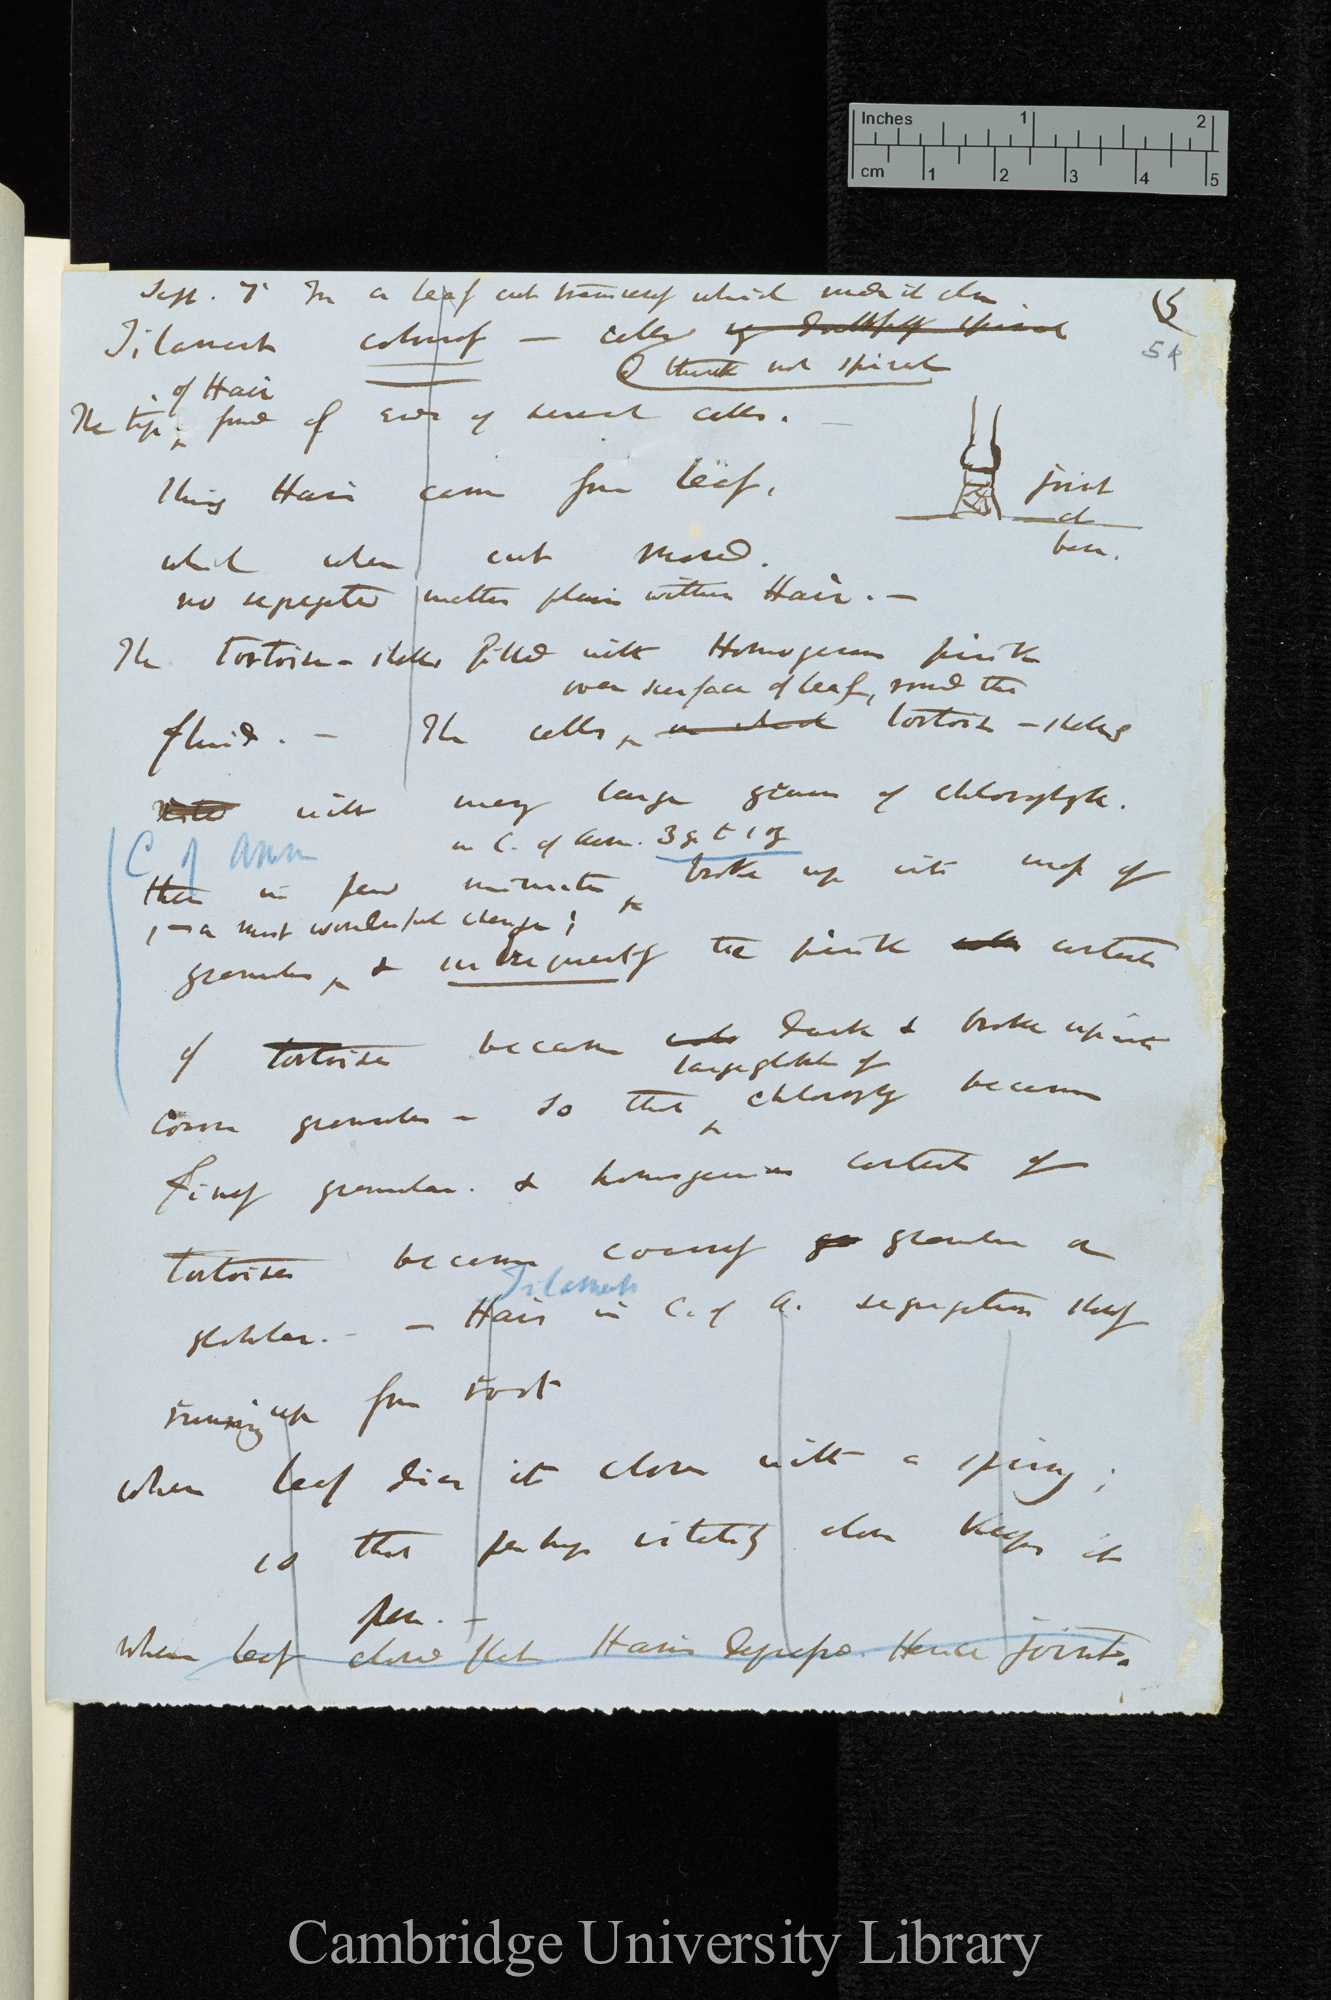 Inches 1 2
cm 1 2 3 4 5
Sept. 7 In a leaf cut transversely which made it close
(5
54
Filament colourless — cells
(I think not spiral
of Hair
The tip, formed of row of several cells. —
This Hair came from leaf,
joint
close
base.
which when cut moved.
no segregated matter plain within Hair. —
The tortoise-shells filled with Homogeneous pink
over surface of leaf, round the
fluid. — The cells, in which tortoise-shells
with many large grains of chlorophyll.
C of Amm
in C. of Amm. 3 gr to 1 oz
then in few minutes broke up into mass of
, — a most wonderful change;
granules, & subsequently the pink contents
of tortoises became dark & broke up into
large globules of
coarse granules — so that chlorophyll becomes
finely granular. & homogeneous contents of
tortoises become coarsely granular or
Filaments
globular. — — Hair in C. of A. segregation slowly
running up from root
when leaf dies it closes with a spring;
so that perhaps vitality alone keeps it
open. —
When leaf closed flat Hairs depressed. Hence joints.
Cambridge University Library